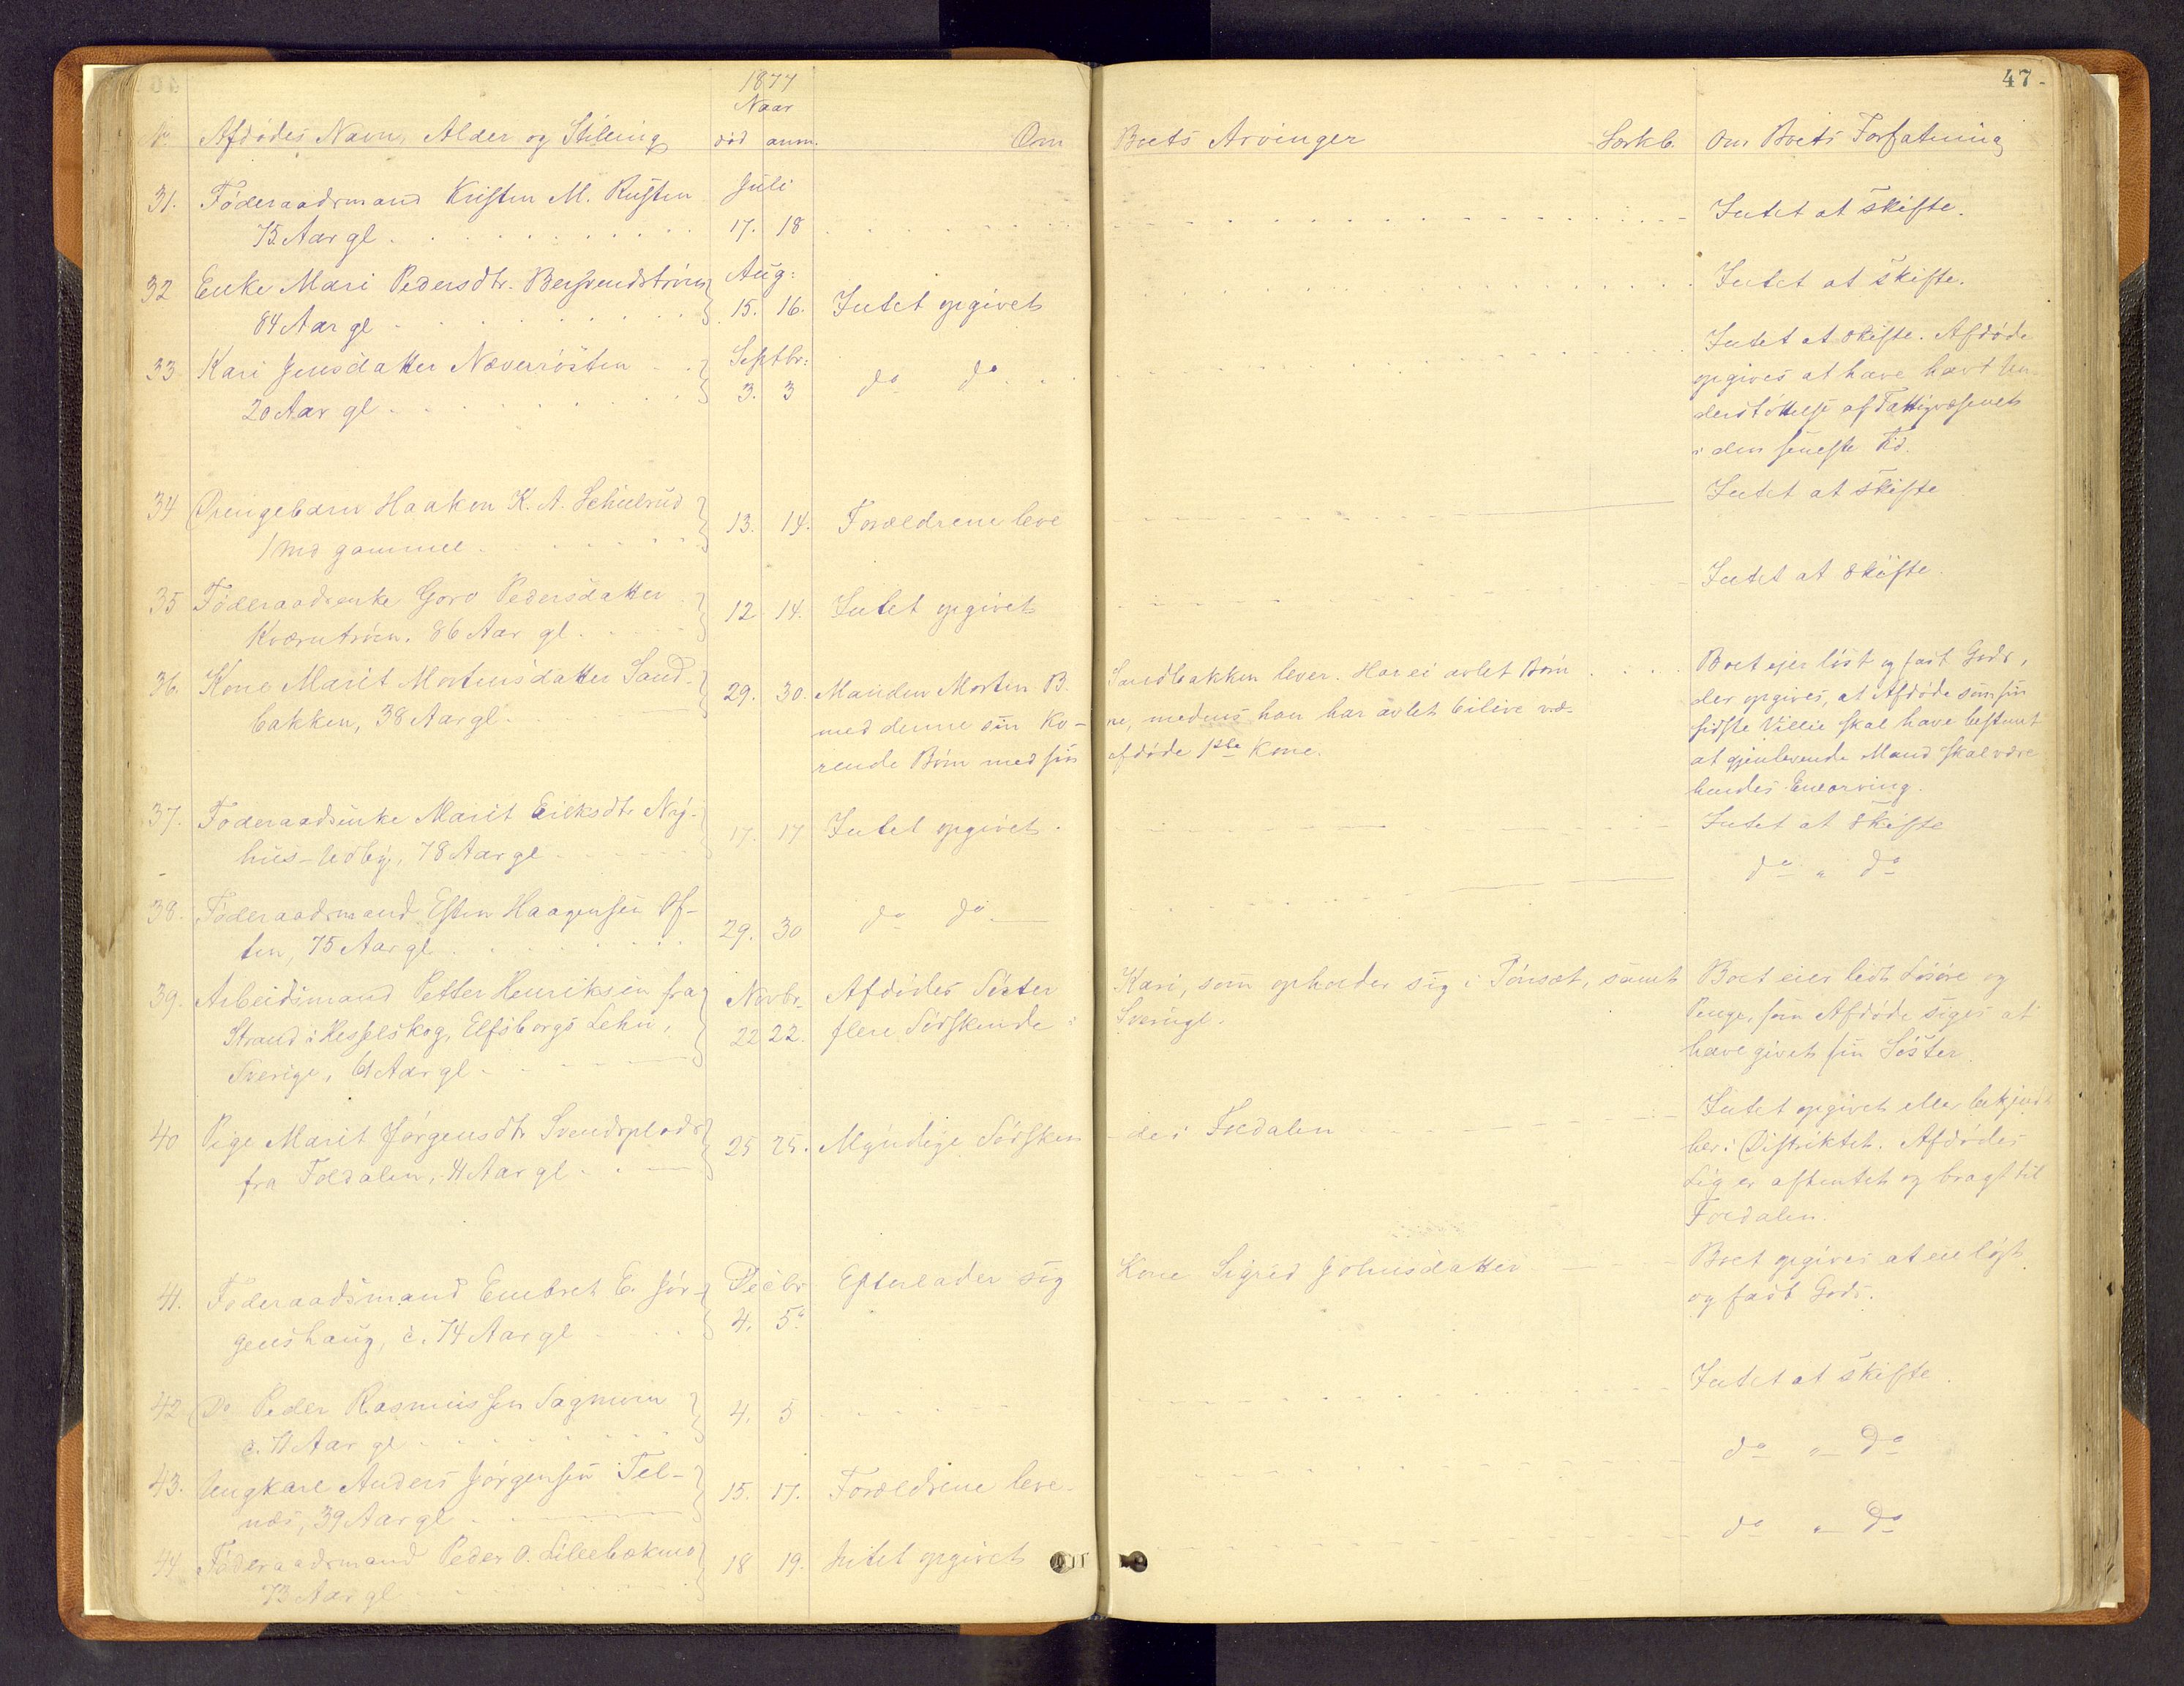 47.
1877
Naar
No Afdødes Navn, Alder og Stilling død anm. Om Boets Arvinger Særkb. Om Boets Forfatning
31. Föderaadsmand Kristen M. Rusten Juli Intet at skifte.
75 Aar gl 17. 18
32 Enke Mari Pedersdtr. Aug: Intet at skifte.
84 Aar gl 15. 16. Intet opgivet
33. Kari Jensdatter Næverrösten Septbr: Intet at skifte. Afdøde
20 Aar gl 3. 3 do do opgives at have havt Un
derstöttelse af Fattigvæsenet
i den seneste Tid.
34 Drengebarn Haakon K. A. Schulrud Intet at skifte
1 Md gammel 13. 14. Forældrene leve
35 Föderaadsenke Goro Pedersdatter Intet at skifte.
Kværntrøen. 86 Aar gl. 12 14. Intet opgivet
36. Kone Marit Mortensdatter Sand- 29. 30. Manden Morten B. Sandbakken lever. Har ei avlet Bør Boet ejer löst og fast Gods,
bakken, 38 Aar gl. med denne sin Ko- ne, medens han har avlet 6 ilive væ- der opgives, at Afdøde som sin
rende Börn med sin afdøde 1ste Kone. sidste Villie skal have bestemt
at gjenlevende Mand skal være
hendes Enearving.
37. Föderaadsenke Marit Eriksdtr Ny- 17. 17 Intet opgivet. Intet at skifte
hus-Udby, 78 Aar gl do " do
38. Föderaadsmand Esten Haagensen Of-
ten, 75 Aar gl 29. 30 do do
39. Arbeidsmand Petter Henriksen fra Novbr. Afdødes Söster Kari, som opholder sig i Tönset, samt Boet eier lidt Lösöre og
Strand i Hesselskog, Elfsborgs Lehn, 22 22. flere Södskende i Sverige. Penge, som Afdøde siges at
Sverige, 61 Aar gl have givet sin Söster.
40 Pige Marit Jörgensdtr Svendsplads 25 25. Myndige Södsken de i Foldalen Intet opgivet eller bekjendt
fra Foldalen, 41 Aar gl. her i Distriktet. Afdødes
Lig er afhentet og bragt til
Foldalen.
41. Föderaadsmand Embret E. Jör- Decbr Efterlader sig Kone Sigrid Johnsdatter Boet opgives at eie löst
genshaug, c. 74 Aar gl 4. 5. og fast Gods.
42. Do Peder Rasmussen Sagmoen 4. 5 Intet at skifte.
c. 71 Aar gl
43. Ungkarl Anders Jörgensen Tel- 15. 17. Forældrene leve. do " do
næs, 39 Aar gl
44 Föderaadsmand Peder O. Lillebækmo 18 19. Intet opgivet do " do
73 Aar gl